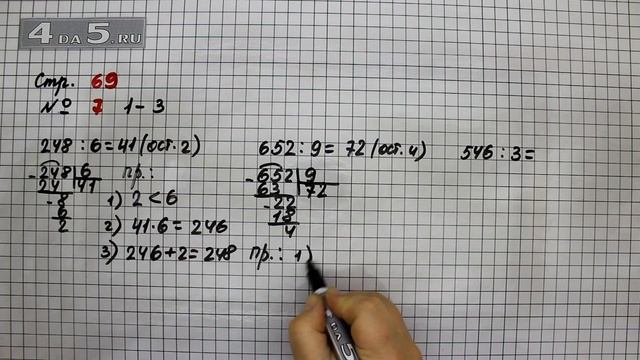 4 DA 5.RU
Стр. 69
№ 7 1-3
248 : 6 = 41 (ост. 2)
- 248 | 6
24 | 41
- 8
6
2
пр.:
1) 2 < 6
2) 41·6 = 246
3) 246 + 2 = 248
652 : 9 = 72 (ост. 4)
- 652 | 9
63 | 72
- 22
18
4
пр.: 1)
546 : 3 =